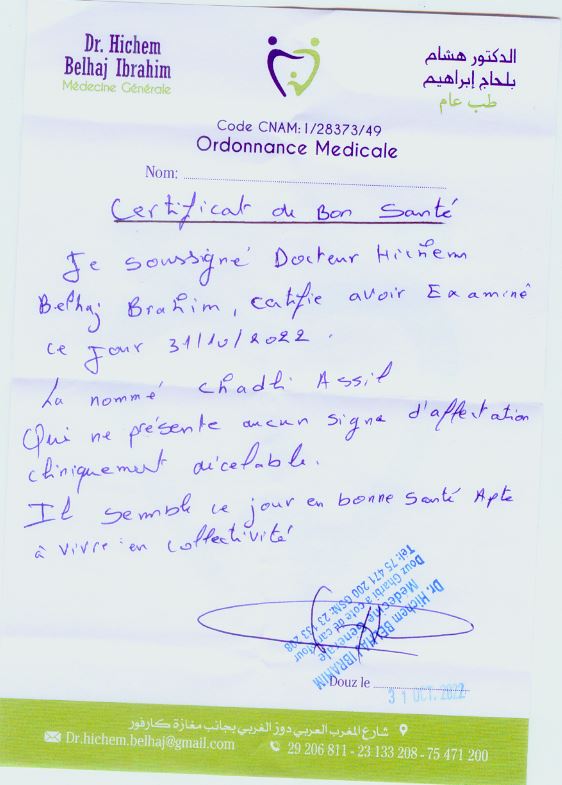 Dr. Hichem
Belhaj Ibrahim
Médecine Générale
الدكتور هشام
بلحاج إبراهيم
طب عام
Code CNAM: 1/28373/49
Ordonnance Medicale
Nom:
Certificat de Bon Santé
Je soussigné Docteur Hichem
Belhaj Brahim, certifie avoir Examiné
ce jour 31/10/2022.
La nommé Chadli Assil
Qui ne présente aucun signe d'affectation
cliniquement décelable.
Il semble ce jour en bonne santé Apte
à vivre en collectivité
Dr. Hichem BELHAJ IBRAHIM
Medecine Generale
Douz Gharbi à coté de carrefour
Tel: 75 471 200 GSM: 23 133 208
Douz le
31 OCT. 2022
شارع المغرب العربي دوز الغربي بجانب مغازة كارفور
Dr.hichem.belhaj@gmail.com
29 206 811 - 23 133 208 - 75 471 200